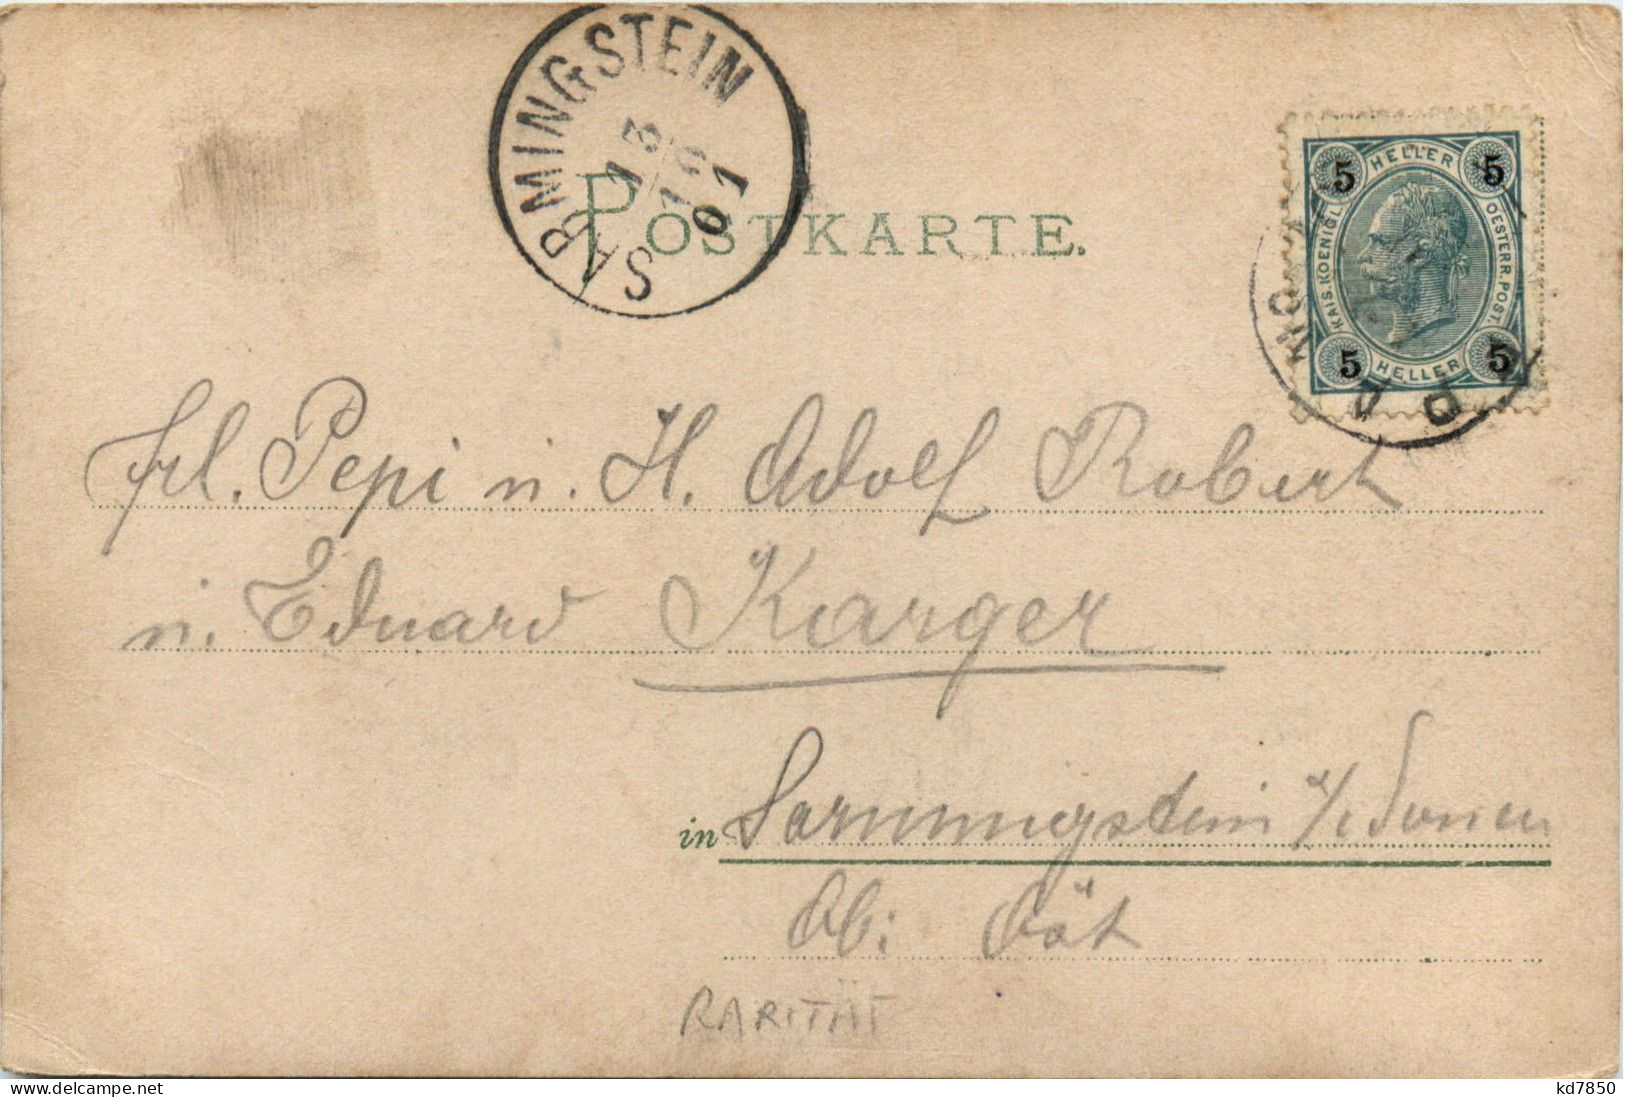 SARMINGSTEIN
13
10
01
POSTKARTE.
5 HELLER 5
KAIS. KOENIGL. OESTERR. POST.
5 HELLER 5
Frl. Pepi u. H. Adolf Robert
u. Eduard Karger
in Sarmingstein a/
Ob: Öst
RARITÄT
kd7850
www.delcampe.net